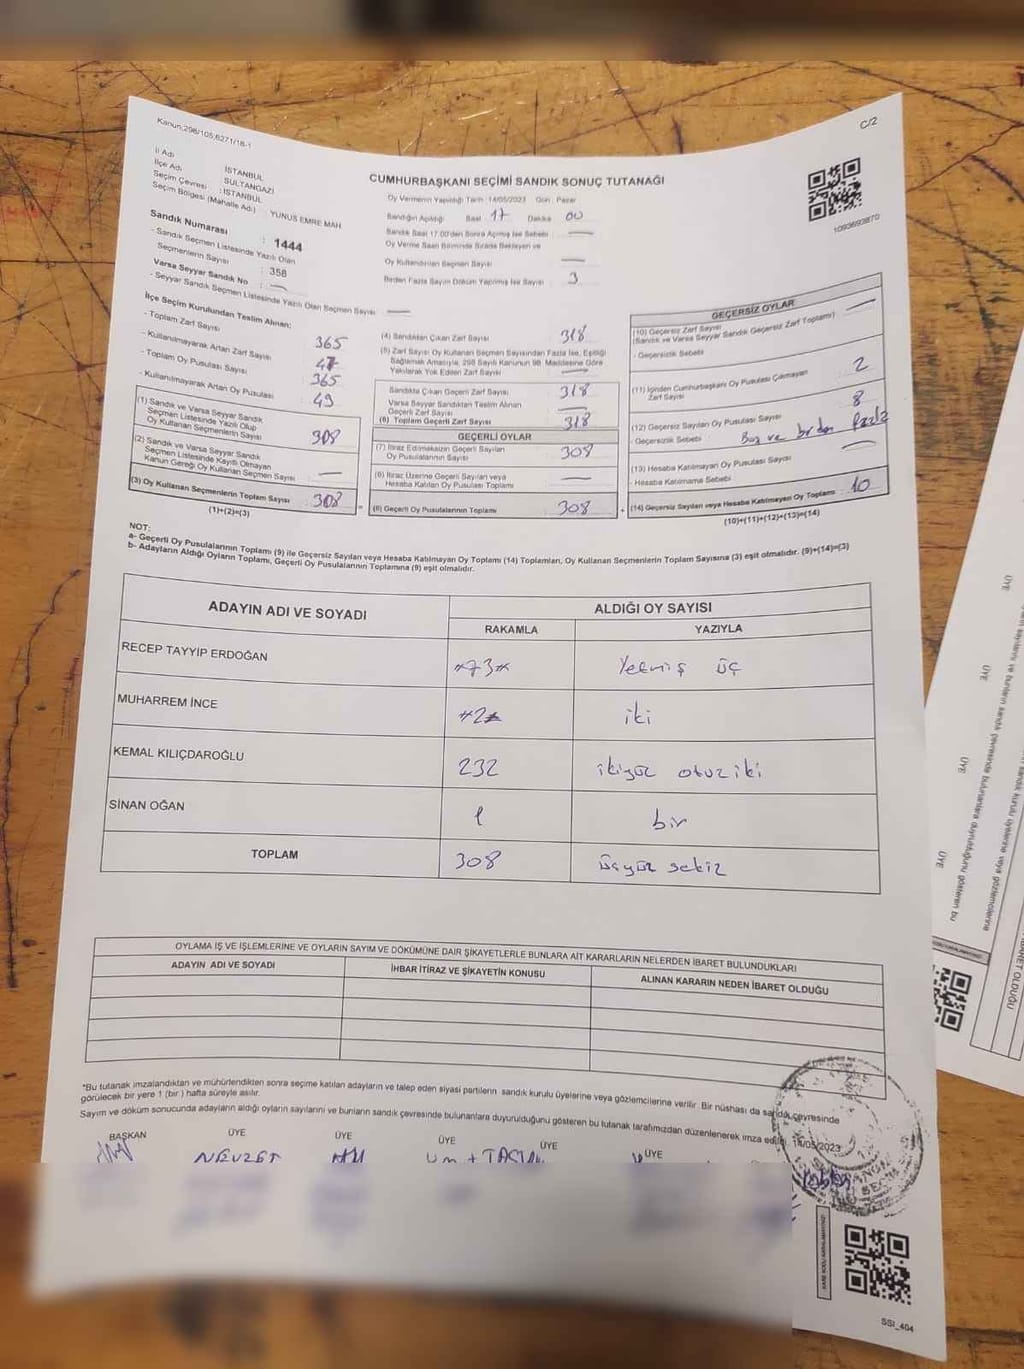 Kanun;298/105;6271/18-1
C/2
İl Adı : İSTANBUL
İlçe Adı : SULTANGAZİ
Seçim Çevresi : İSTANBUL
Seçim Bölgesi (Mahalle Adı) : YUNUS EMRE MAH
CUMHURBAŞKANI SEÇİMİ SANDIK SONUÇ TUTANAĞI
Oy Vermenin Yapıldığı Tarih :14/05/2023 Gün : Pazar
Sandığın Açıldığı Saat : 17 Dakika : 00
Sandık Saat 17.00'den Sonra Açılmış İse Sebebi :
Oy Verme Saati Bitiminde Sırada Bekleyen ve
Oy Kullandırılan Seçmen Sayısı
Birden Fazla Sayım Döküm Yapılmış İse Sayısı : 3
1093693870
Sandık Numarası : 1444
- Sandık Seçmen Listesinde Yazılı Olan
Seçmenlerin Sayısı : 358
Varsa Seyyar Sandık No :
- Seyyar Sandık Seçmen Listesinde Yazılı Olan Seçmen Sayısı
İlçe Seçim Kurulundan Teslim Alınan:
- Toplam Zarf Sayısı 365
- Kullanılmayarak Artan Zarf Sayısı 47
- Toplam Oy Pusulası Sayısı 365
- Kullanılmayarak Artan Oy Pusulası 49
(1) Sandık ve Varsa Seyyar Sandık
Seçmen Listesinde Yazılı Olup
Oy Kullanan Seçmenlerin Sayısı 308
(2) Sandık ve Varsa Seyyar Sandık
Seçmen Listesinde Kayıtlı Olmayan
Kanun Gereği Oy Kullanan Seçmen Sayısı
(3) Oy Kullanan Seçmenlerin Toplam Sayısı 308
(1)+(2)=(3)
(4) Sandıktan Çıkan Zarf Sayısı 318
(5) Zarf Sayısı Oy Kullanan Seçmen Sayısından Fazla İse, Eşitliği
Sağlamak Amacıyla, 298 Sayılı Kanunun 98. Maddesine Göre
Yakılarak Yok Edilen Zarf Sayısı
Sandıkta Çıkan Geçerli Zarf Sayısı 318
Varsa Seyyar Sandıktan Teslim Alınan
Geçerli Zarf Sayısı
(6) Toplam Geçerli Zarf Sayısı 318
GEÇERLİ OYLAR
(7) İtiraz Edilmeksizin Geçerli Sayılan
Oy Pusulalarının Sayısı 308
(8) İtiraz Üzerine Geçerli Sayılan veya
Hesaba Katılan Oy Pusulası Toplamı
(9) Geçerli Oy Pusulalarının Toplamı 308
GEÇERSİZ OYLAR
(10) Geçersiz Zarf Sayısı
(Sandık ve Varsa Seyyar Sandık Geçersiz Zarf Toplamı)
- Geçersizlik Sebebi
(11) İçinden Cumhurbaşkanı Oy Pusulası Çıkmayan
Zarf Sayısı 2
(12) Geçersiz Sayılan Oy Pusulası Sayısı 8
- Geçersizlik Sebebi Boş ve birden fazla
(13) Hesaba Katılmayan Oy Pusulası Sayısı
- Hesaba Katılmama Sebebi
(14) Geçersiz Sayılan veya Hesaba Katılmayan Oy Toplamı 10
(10)+(11)+(12)+(13)=(14)
NOT:
a- Geçerli Oy Pusulalarının Toplamı (9) ile Geçersiz Sayılan veya Hesaba Katılmayan Oy Toplamı (14) Toplamları, Oy Kullanan Seçmenlerin Toplam Sayısına (3) eşit olmalıdır. (9)+(14)=(3)
b- Adayların Aldığı Oyların Toplamı, Geçerli Oy Pusulalarının Toplamına (9) eşit olmalıdır.
ADAYIN ADI VE SOYADI ALDIĞI OY SAYISI
RAKAMLA YAZIYLA
RECEP TAYYİP ERDOĞAN *73* Yetmiş üç
MUHARREM İNCE *2* iki
KEMAL KILIÇDAROĞLU 232 ikiyüz otuziki
SİNAN OĞAN 1 bir
TOPLAM 308 üçyüz sekiz
OYLAMA İŞ VE İŞLEMLERİNE VE OYLARIN SAYIM VE DÖKÜMÜNE DAİR ŞİKAYETLERLE BUNLARA AİT KARARLARIN NELERDEN İBARET BULUNDUKLARI
ADAYIN ADI VE SOYADI İHBAR İTİRAZ VE ŞİKAYETİN KONUSU ALINAN KARARIN NEDEN İBARET OLDUĞU
*Bu tutanak imzalandıktan ve mühürlendikten sonra seçime katılan adayların ve talep eden siyasi partilerin sandık kurulu üyelerine veya gözlemcilerine verilir. Bir nüshası da sandık çevresinde
görülecek bir yere 1 (bir) hafta süreyle asılır.
Sayım ve döküm sonucunda adayların aldığı oyların sayılarını ve bunların sandık çevresinde bulunanlara duyurulduğunu gösteren bu tutanak tarafımızdan düzenlenerek imza edildi. 14/05/2023
BAŞKAN ÜYE ÜYE ÜYE ÜYE ÜYE
NEVZET
SSİ_404